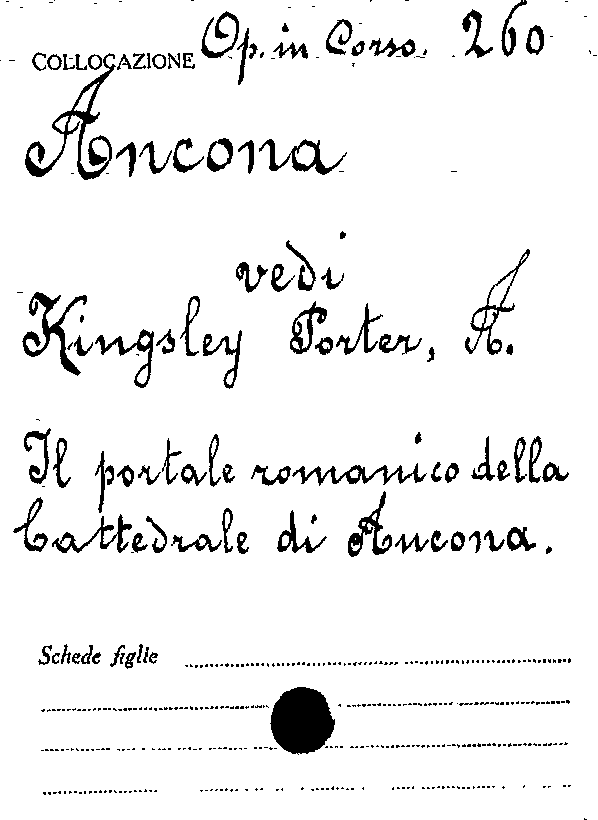 COLLOCAZIONE Op. in Corso. 260
Ancona
vedi
Kingsley Porter, A.
Il portale romanico della
Cattedrale di Ancona.
Schede figlie